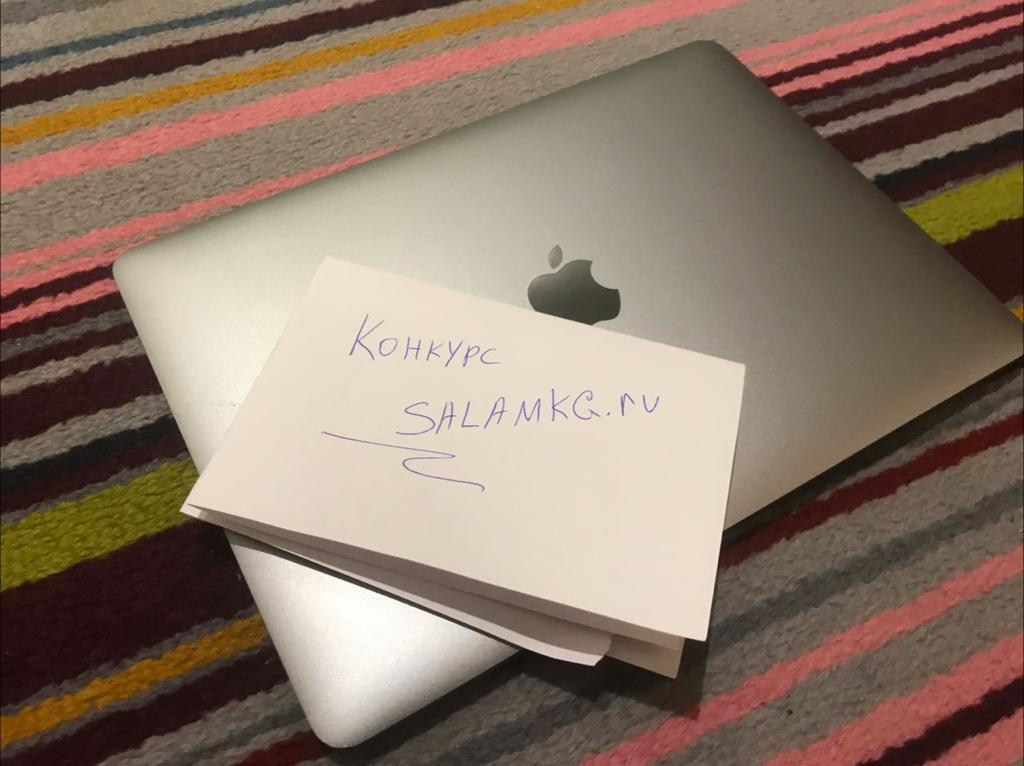 Конкурс
SALAMKG.ru